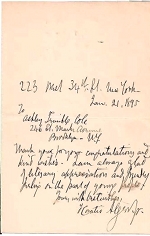 223 West 34th St. New York
Jan. 21, 1895
To
Ashley Trimble Cole
216 St. Marks Avenue
Brooklyn - N.Y.
Thank you for your congratulations and
kind wishes. I am always glad
of literary appreciation and
on the part of young people.
Yours with best wishes,
Horatio Alger Jr.